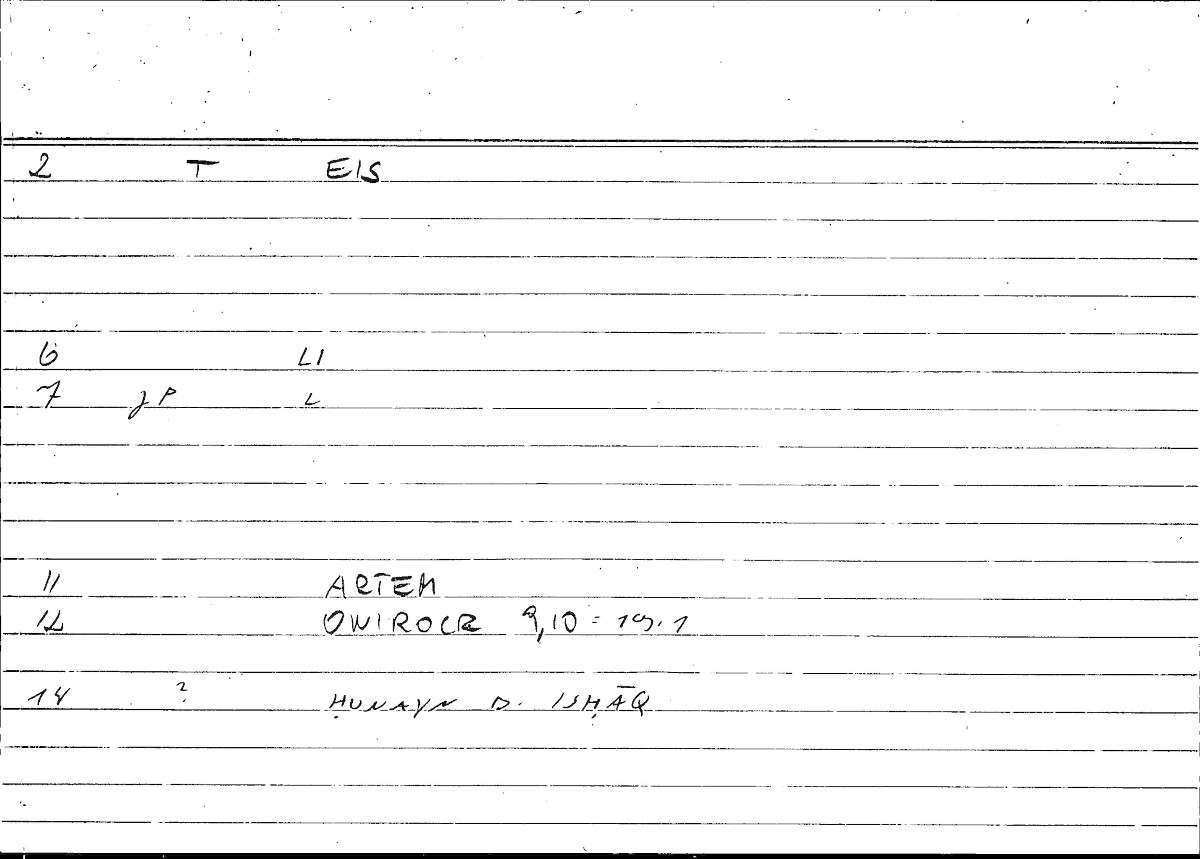 2 T EIS
6 LI
7 jP L
11 ARTEM
12 ONIROCR 9,10 =
14 ? ḤUNAYN B. ISḤĀQ